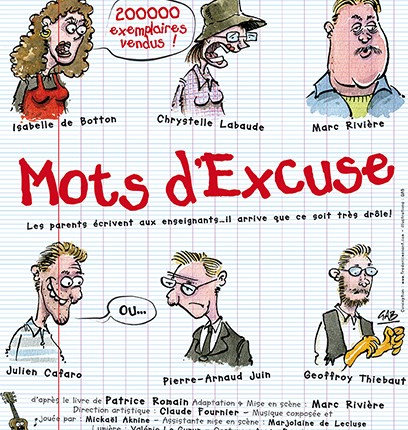 200000
exemplaires
vendus !
Isabelle de Botton
Chrystelle Labaude
Marc Rivière
Mots d'Excuse
Les parents écrivent aux enseignants...il arrive que ce soit très drôle!
OU...
GAB
Julien Cafaro
Pierre-Arnaud Juin
Geoffroy Thiebaut
d'après le livre de Patrice Romain Adaptation & Mise en scène : Marc Rivière
Direction artistique : Claude Fournier - Musique composée et
jouée par : Mickaël Aknine - Assistante mise en scène : Marjolaine de Lecluse
Lumière : Valérie Le Gurun